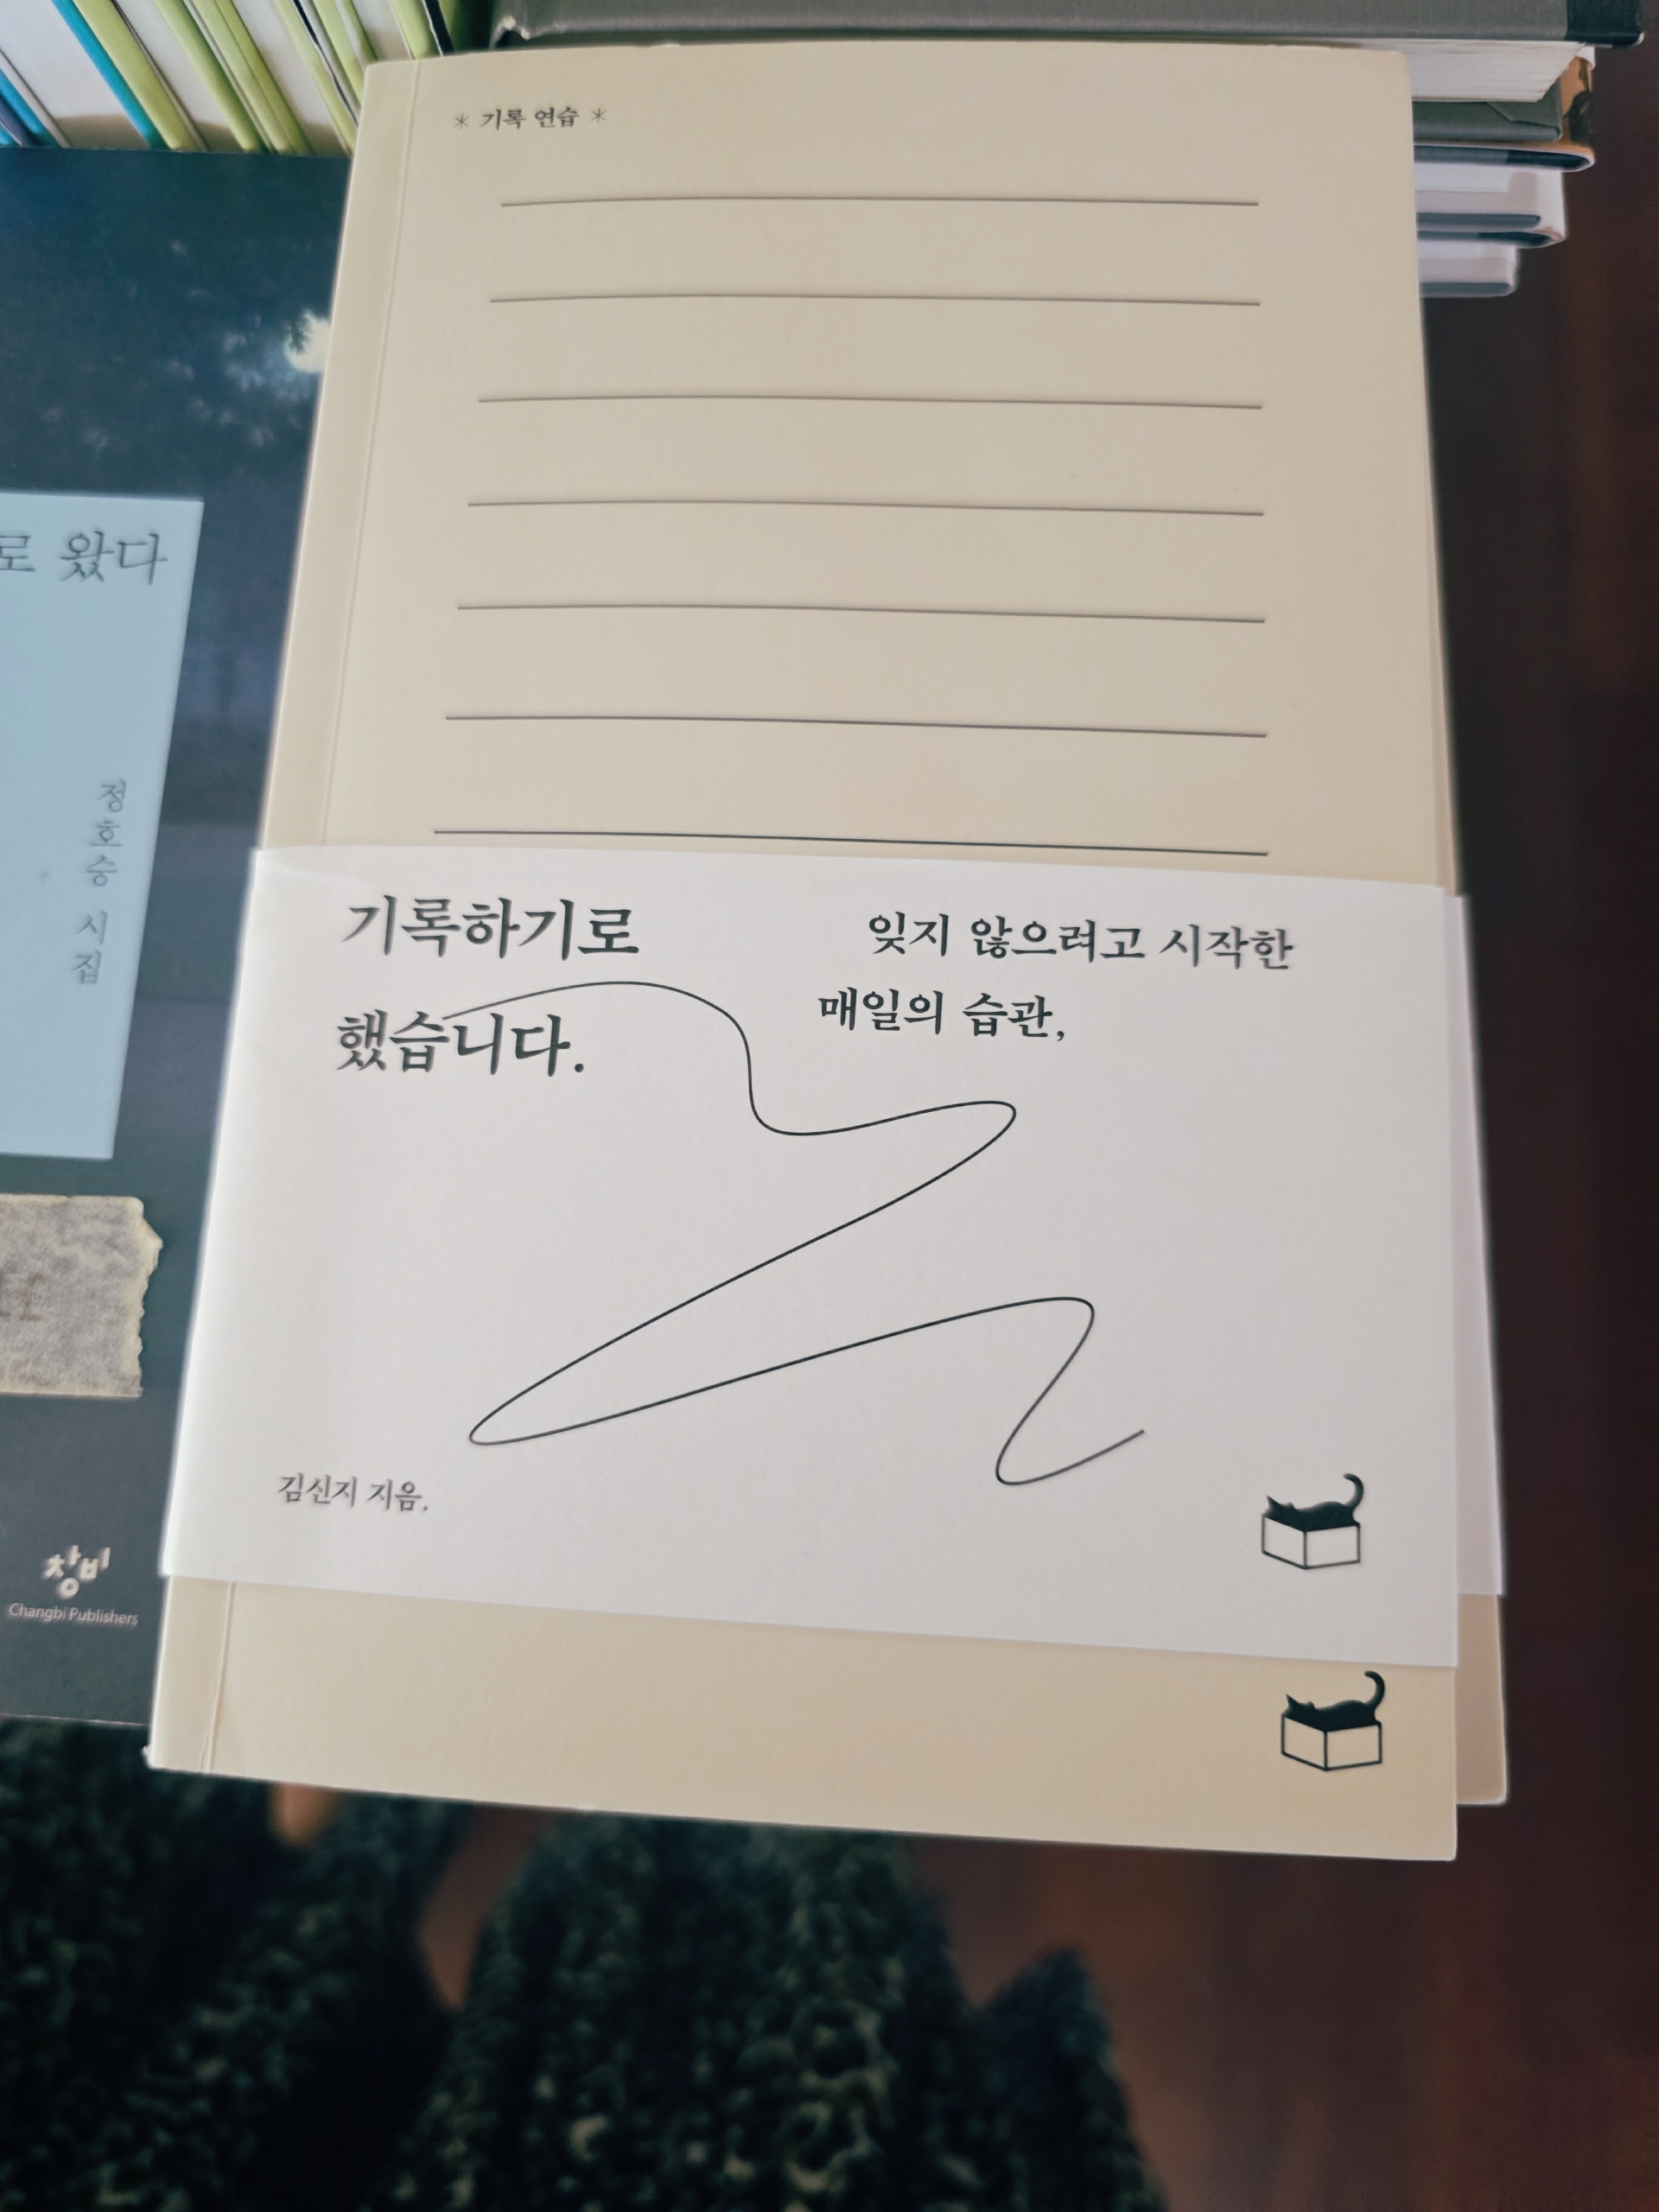 * 기록 연습 *
기록하기로
했습니다.
잊지 않으려고 시작한
매일의 습관,
김신지 지음.
로 왔다
정호승 시집
창비
Changbi Publishers